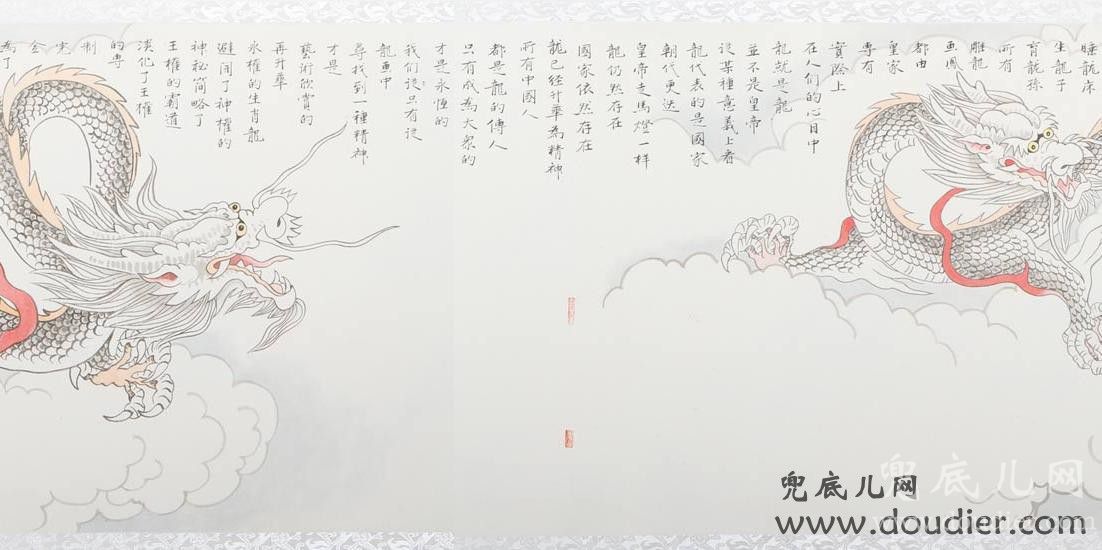 睡龍床
生龍子
育龍孫
所有
雕龍
畫鳳
都由
皇家
專有
實際上
在人们的心目中
龍就是龍
並不是皇帝
從某種意義上看
龍代表的是國家
朝代更迭
皇帝走馬燈一样
龍仍然存在
國家依然存在
龍已经升華為精神
所有中國人
都是龍的傳人
只有成為大眾的
才是永恆的
我们说只有從
龍畫中
尋找到一種精神
才是
藝術欣賞的
再升華
永權的生肖龍
避開了神權的
神秘簡略了
王權的霸道
淡化了王權
的專
制
完
全
為了
兜底儿网
www.doudier.com
兜底儿网
www.doudier.com